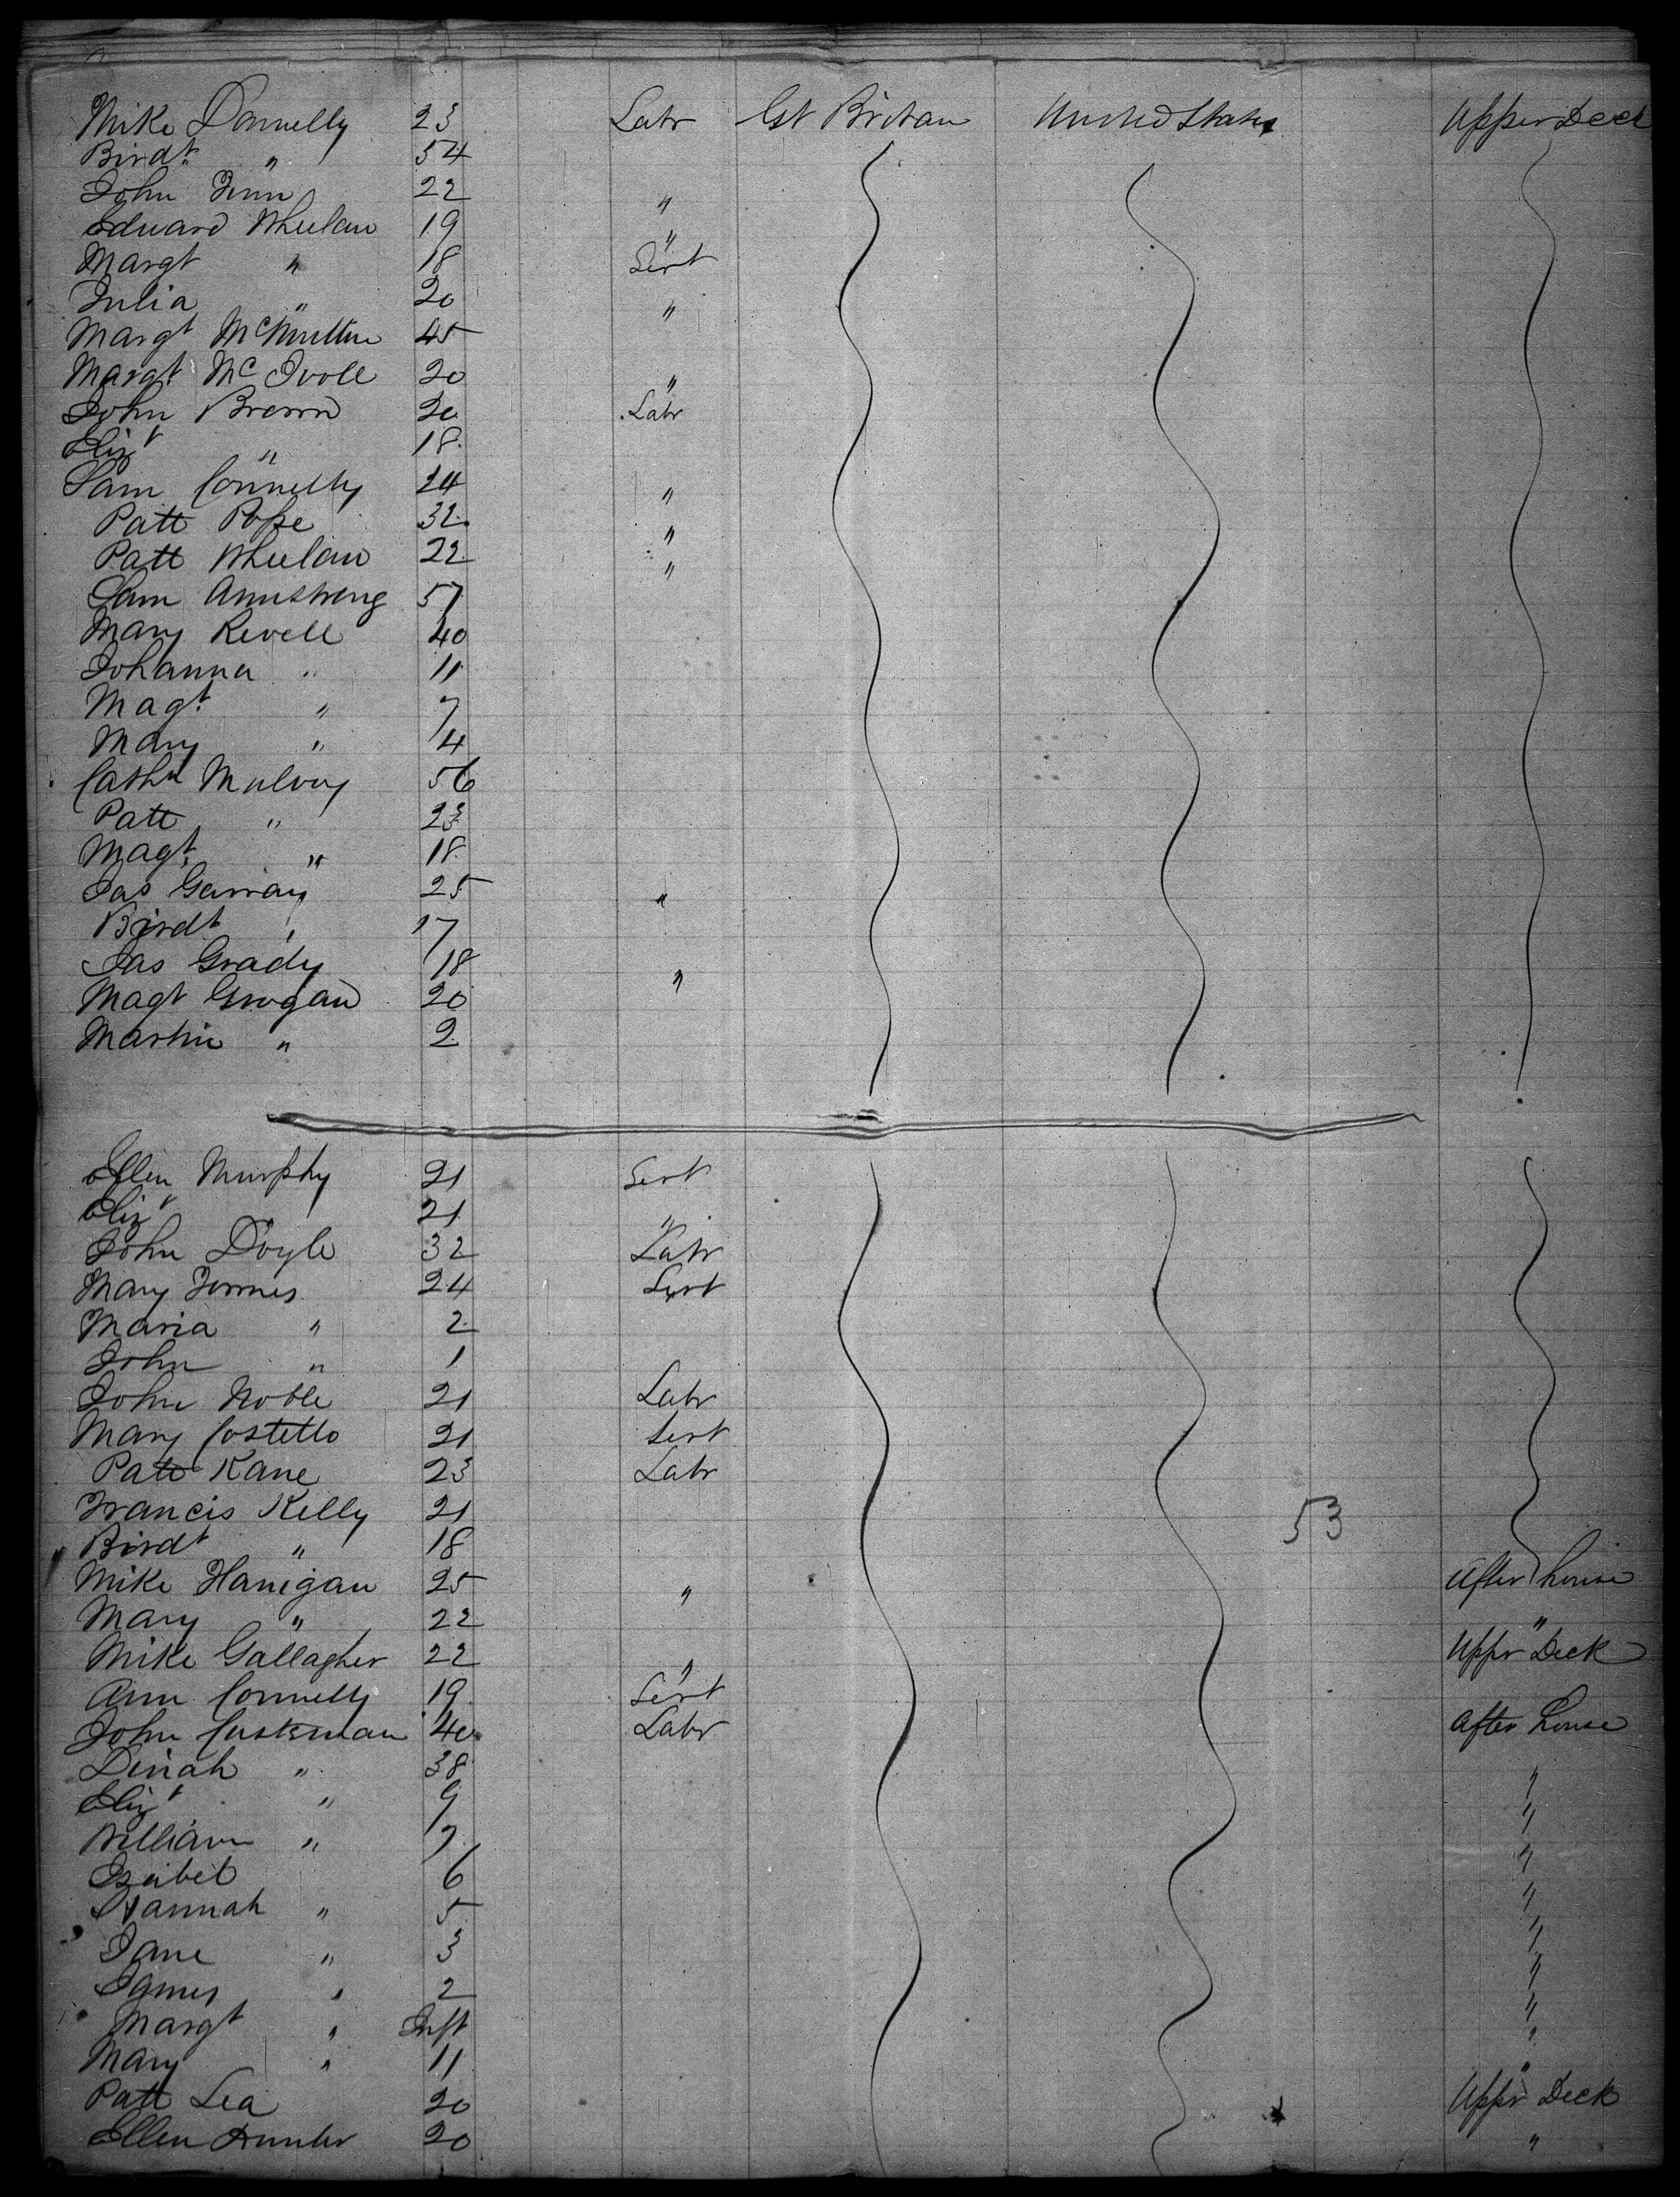 Mike Donnelly 23 Labr Gt Britan United States Upper Deck
Birdt " 54
John Finn 22 "
Edward Wheelan 19 "
Margt " 18 Sert
Julia " 20 "
Margt McMullin 45
Margt Mc 20 "
John Brown 20 Labr
Elizt " 18
Sam Connelly 24 "
Patt Pope 32 "
Patt Wheelan 22 "
Sam Armstrong 57
Mary Revell 40
Johanna " 11
Magt " 7
Mary " 4
Cathn Mulvoy 56
Patt " 23
Magt " 18
Jas Garray 25 "
Birdt " 17
Jas Grady 18 "
Magt Grogan 20
Martin " 2
Ellen Murphy 21 Sert
Elizt " 21 "
John Doyle 32 Labr
Mary 24 Sert
Maria " 2
John " 1
John Noble 21 Labr
Mary Costello 21 Sert
Patt Kane 23 Labr
Francis Kelly 21 53
Birdt " 18
Mike Hanigan 25 " After house
Mary " 22 "
Mike Gallagher 22 " Uppr Deck
Ann Connelly 19 Sert
John 40 Labr After house
Dinah " 38 "
Elizt " 9 "
William " 7 "
Isabel 6 "
Hannah " 5 "
Jane " 3 "
" 2 "
Margt " Inft "
Mary " 11 "
Patt Lea 20 Uppr Deck
Ellen Hunter 20 "